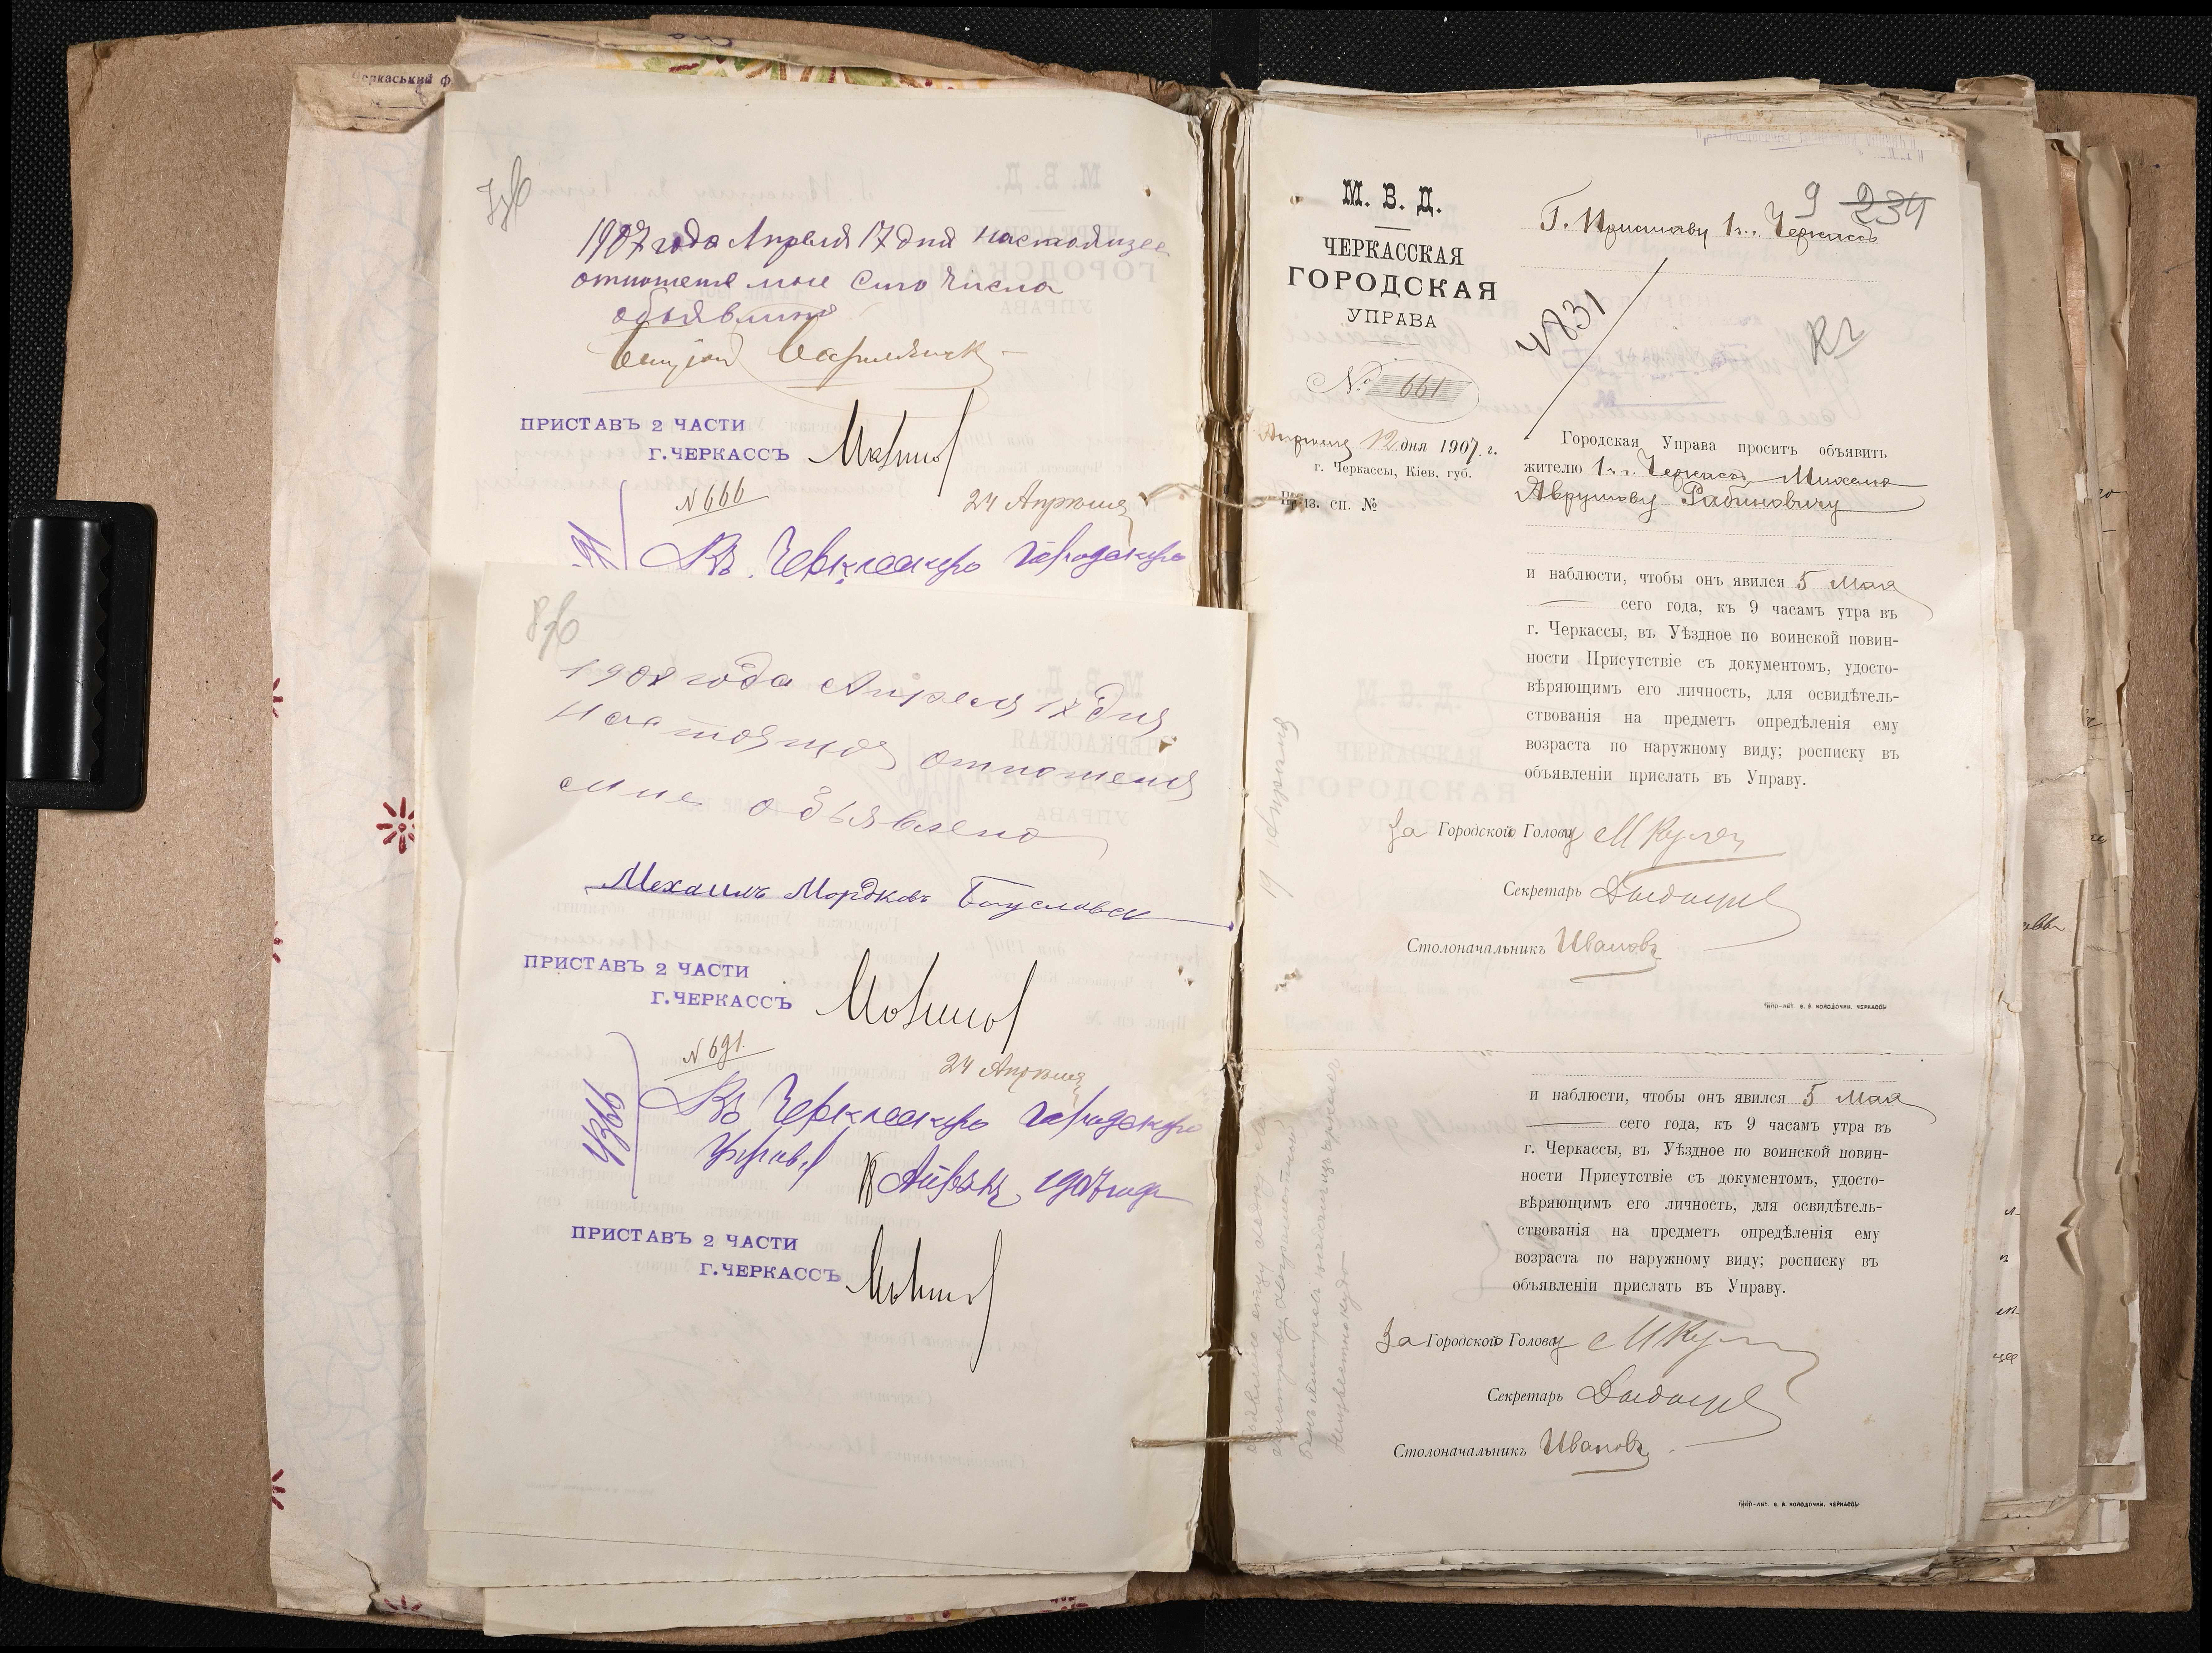 Черкаський ф
1907 года Апреля 17 дня настоящее
отношение мне сего числа
объявлено
ПРИСТАВЪ 2 ЧАСТИ
Г.ЧЕРКАССЪ
N 666
24 Апреля
Въ Черкасскую Городскую
8об
1907 года Апреля 18 дня
настоящоя отношения
мне объявлено
Мехаилъ Мордковъ Богуславск
ПРИСТАВЪ 2 ЧАСТИ
Г.ЧЕРКАССЪ
N 691.
24 Апреля
4366
Въ Черкасскую Городскую
Управу Апреля 1907 года
ПРИСТАВЪ 2 ЧАСТИ
Г.ЧЕРКАССЪ
М. В. Д.
ЧЕРКАССКАЯ
ГОРОДСКАЯ
УПРАВА
№ 661
Апреля 12 дня 1907 г.
г. Черкассы, Кіев. губ.
Приз. сп. №
9 234
Г. Приставу 1 ч. г. Черкассъ
4831
Городская Управа проситъ объявить
жителю 1 ч. г. Черкассъ Михелю
Аврумову Рабиновичу
и наблюсти, чтобы онъ явился 5 Мая
сего года, къ 9 часамъ утра въ
г. Черкассы, въ Уѣздное по воинской повин-
ности Присутствіе съ документомъ, удосто-
вѣряющимъ его личность, для освидѣтель-
ствованія на предметъ опредѣленія ему
возраста по наружному виду; росписку въ
объявленіи прислать въ Управу.
За Городского Голову
Секретарь
Столоначальникъ Ивановъ
ТИПО-ЛИТ. В. В. КОЛОДОЧКИ. ЧЕРКАССЫ
19 Апреля
и наблюсти, чтобы онъ явился 5 Мая
сего года, къ 9 часамъ утра въ
г. Черкассы, въ Уѣздное по воинской повин-
ности Присутствіе съ документомъ, удосто-
вѣряющимъ его личность, для освидѣтель-
ствованія на предметъ опредѣленія ему
возраста по наружному виду; росписку въ
объявленіи прислать въ Управу.
За Городского Голову
Секретарь
Столоначальникъ Ивановъ